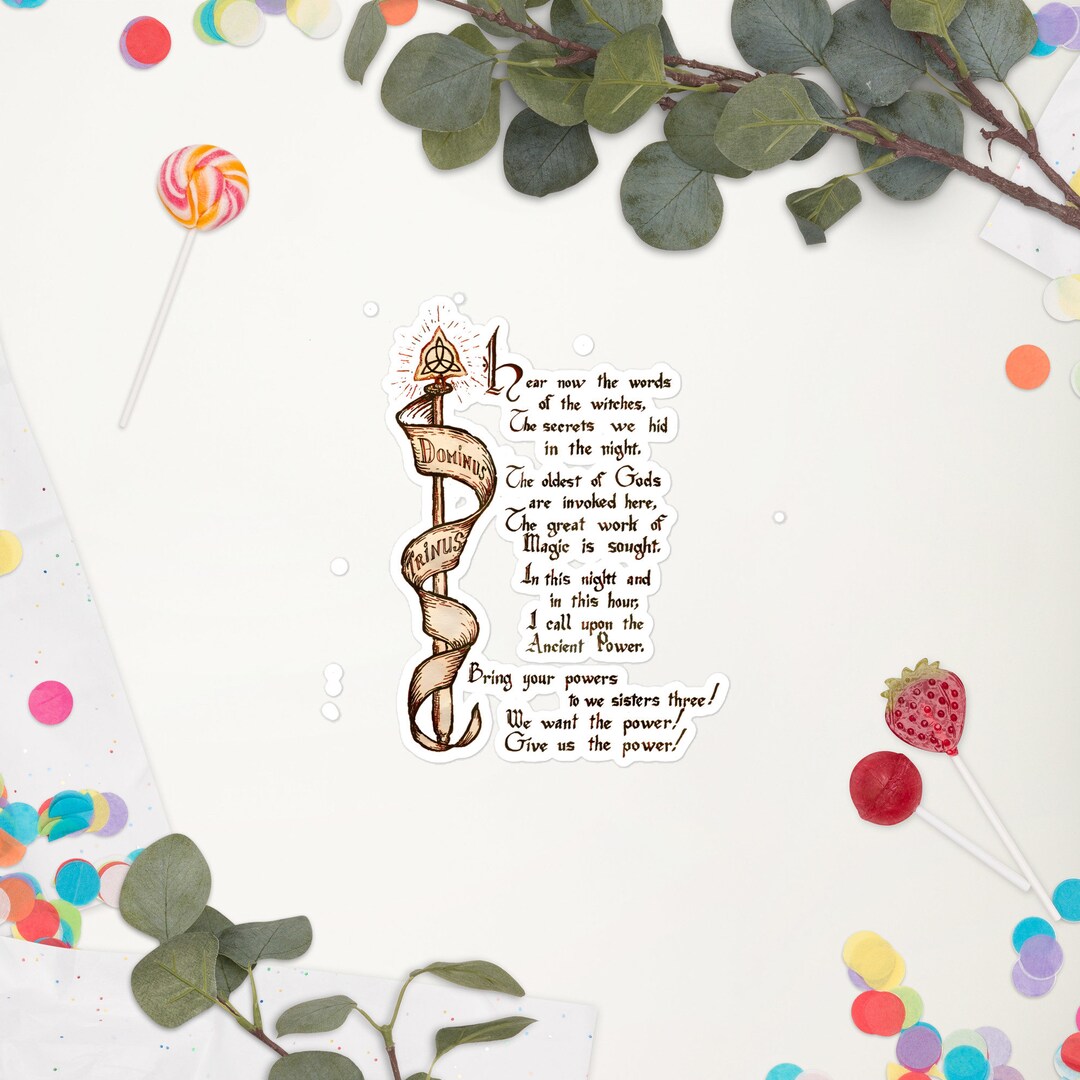 Dominus
Trinus
Hear now the words
of the witches,
The secrets we hid
in the night.
The oldest of Gods
are invoked here,
The great work of
Magic is sought.
In this night and
in this hour,
I call upon the
Ancient Power.
Bring your powers
to we sisters three!
We want the power!
Give us the power!